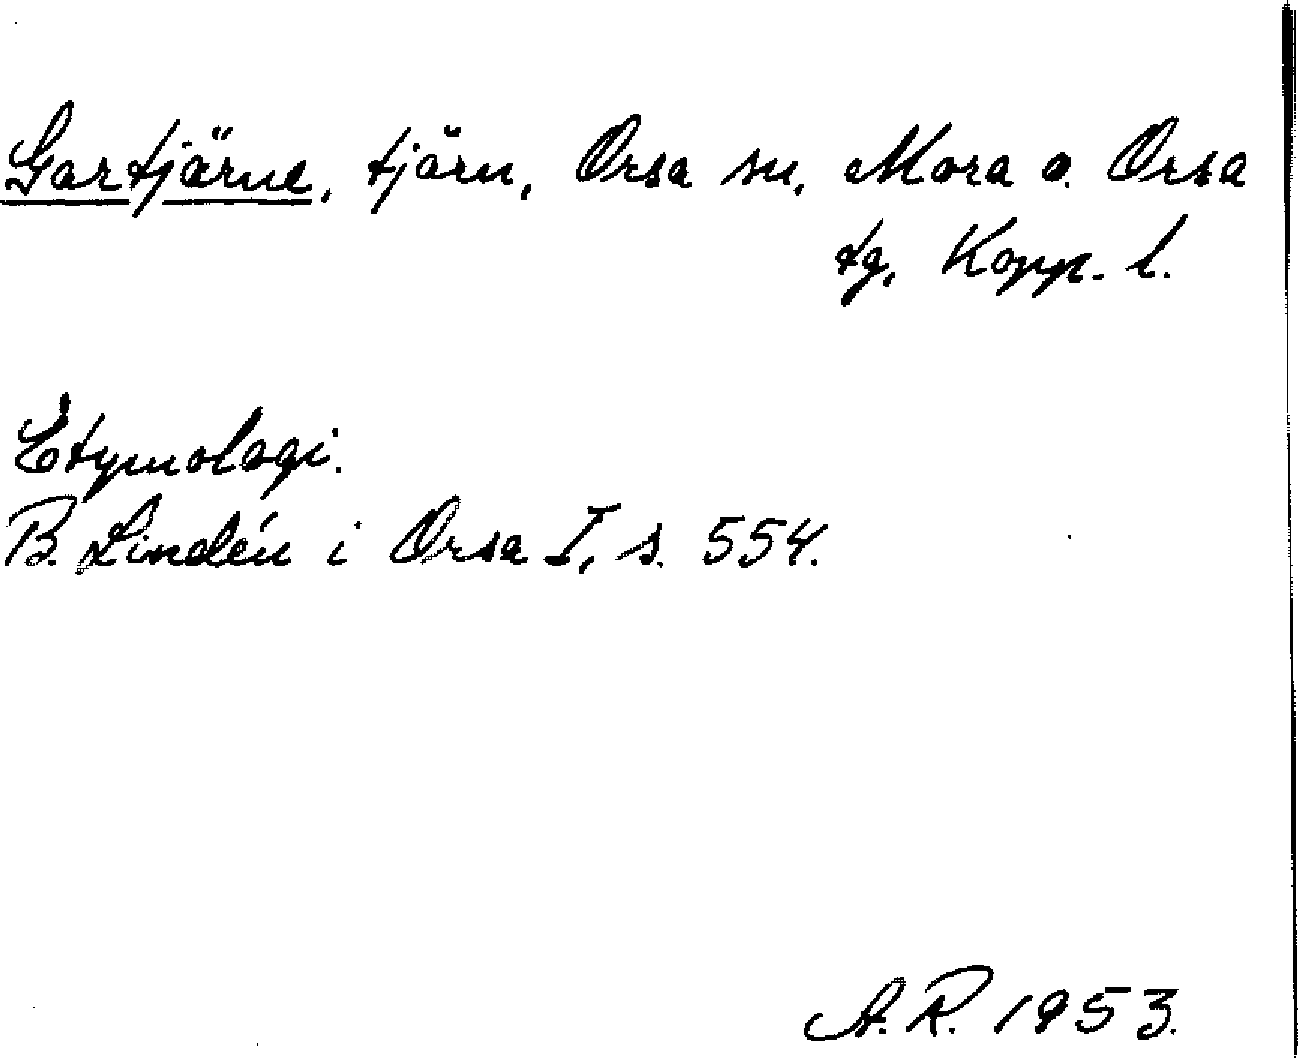 Gartjärne, tjärn, Orsa sn, Mora o. Orsa
tg, Kopp. l.
Etymologi.
B. Lindén i Orsa I, s. 554.
A.R. 1953.